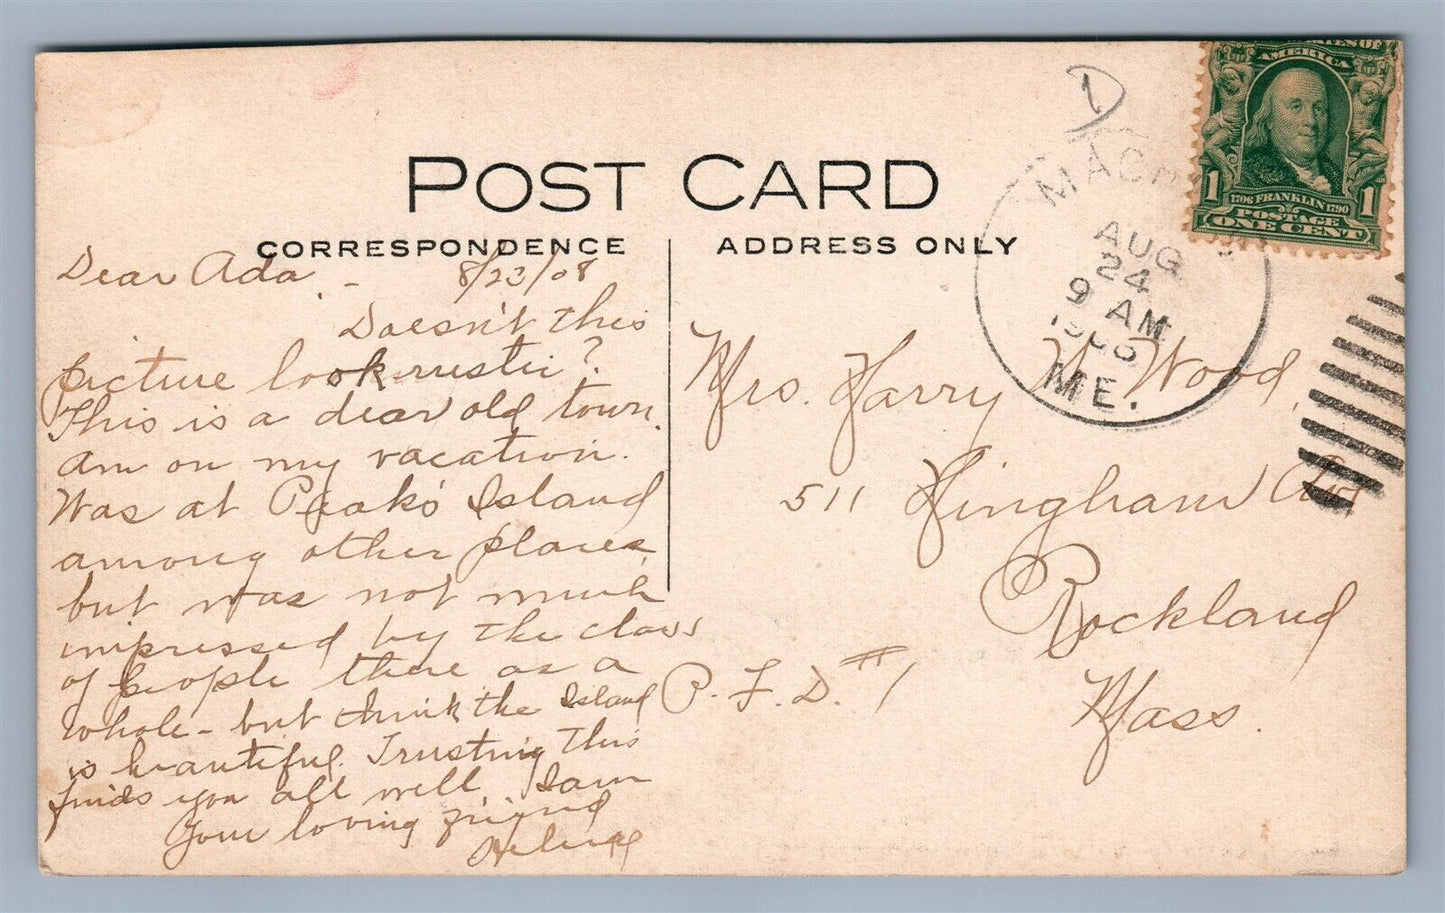 POST CARD
CORRESPONDENCE
ADDRESS ONLY
Dear Ada. - 8/23/08
Doesn't this
picture look rustic?
This is a dear old town.
Am on my vacation.
Was at Peak's Island
among other places,
but was not much
impressed by the class
of people there as a
whole - but think the Island
is beautiful. Trusting this
finds you all well, I am
Your loving friend
Mrs. Harry W. Wood,
511 Hingham Ave
Rockland
Mass.
R. F. D. #1
AUG
24
9 AM
ME.
AMERICA
1 1
1706 FRANKLIN 1790
POSTAGE
ONE CENT